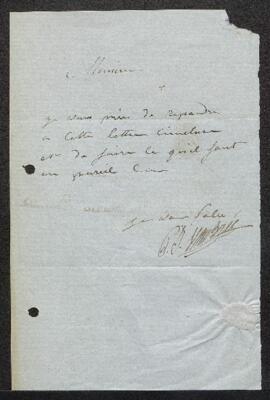 Monsieur
je vous prie de repondre
a cette lettre
et de faire ce qu'il faut
en pareil cas
je vous salue